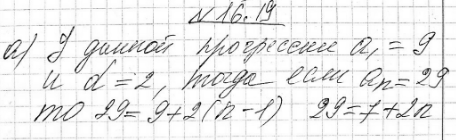 №16.19
а) У данной прогрессии a₁ = 9
и d = 2, тогда если aₙ = 29
то 29 = 9 + 2(n - 1) 29 = 7 + 2n